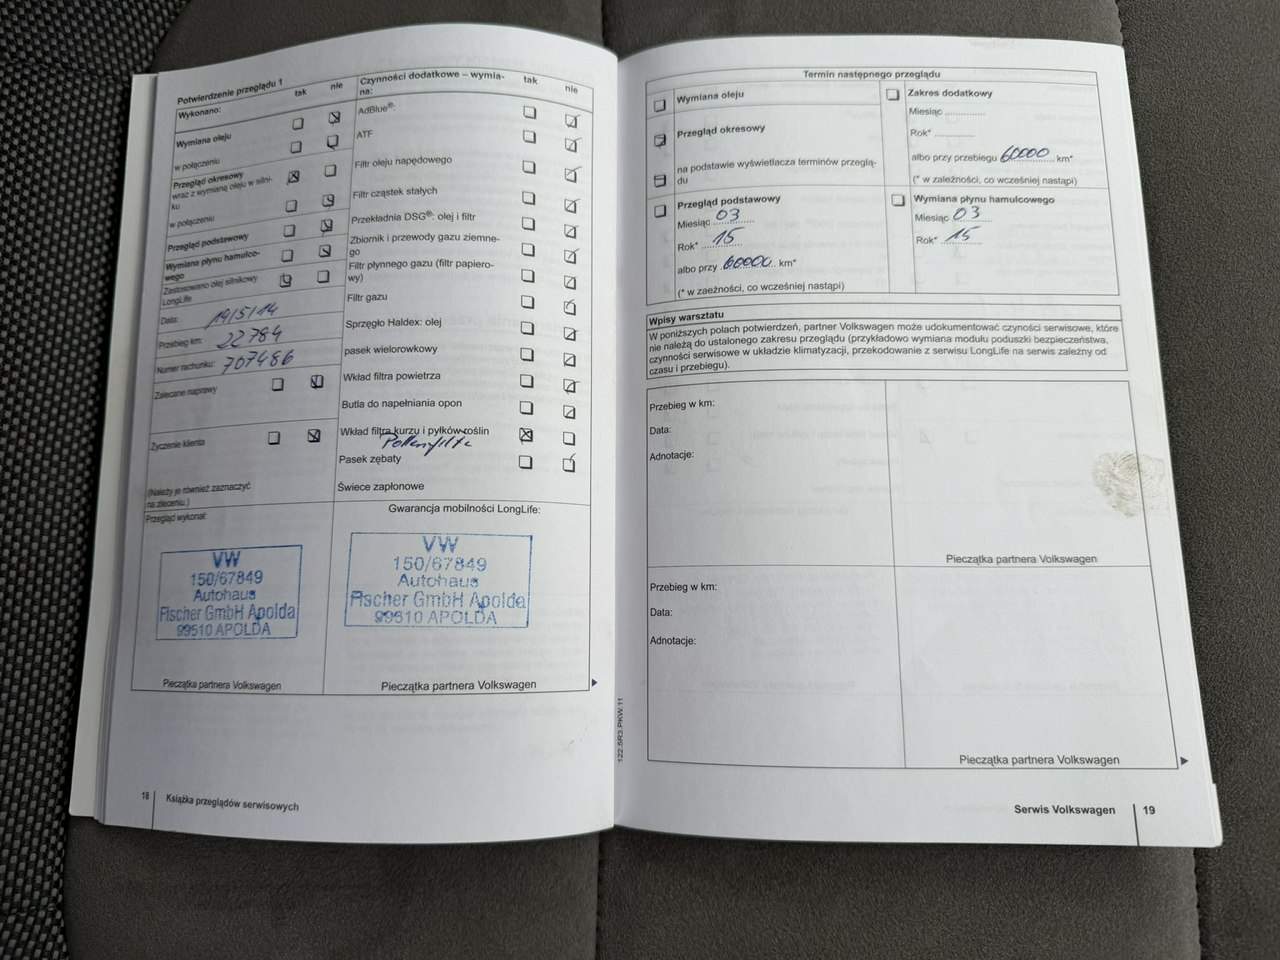 Potwierdzenie przeglądu 1
Wykonano:
tak
nie
Wymiana oleju
w połączeniu
Przegląd okresowy
wraz z wymianą oleju w silni-
ku
w połączeniu
Przegląd podstawowy
Wymiana płynu hamulco-
wego
Zastosowano olej silnikowy
LongLife
Data: 19/5/14
Przebieg km: 22 784
Numer rachunku: 707486
Zalecane naprawy
Życzenie klienta
(Należy je również zaznaczyć
na zleceniu.)
Przegląd wykonał:
VW
150/67849
Autohaus
Fischer GmbH Apolda
99510 APOLDA
Pieczątka partnera Volkswagen
Czynności dodatkowe – wymia-
na:
tak
nie
AdBlue®
ATF
Filtr oleju napędowego
Filtr cząstek stałych
Przekładnia DSG®: olej i filtr
Zbiornik i przewody gazu ziemne-
go
Filtr płynnego gazu (filtr papiero-
wy)
Filtr gazu
Sprzęgło Haldex: olej
pasek wielorowkowy
Wkład filtra powietrza
Butla do napełniania opon
Wkład filtra kurzu i pyłków roślin
Pollenfilter
Pasek zębaty
Świece zapłonowe
Gwarancja mobilności LongLife:
VW
150/67849
Autohaus
Fischer GmbH Apolda
99510 APOLDA
Pieczątka partnera Volkswagen
18 Książka przeglądów serwisowych
122.5R3.PKW.11
Termin następnego przeglądu
Wymiana oleju
Przegląd okresowy
na podstawie wyświetlacza terminów przeglą-
du
Przegląd podstawowy
Miesiąc 03
Rok* 15
albo przy 60000 km*
(* w zaeżności, co wcześniej nastąpi)
Zakres dodatkowy
Miesiąc ..............
Rok* ..............
albo przy przebiegu 60000 km*
(* w zależności, co wcześniej nastąpi)
Wymiana płynu hamulcowego
Miesiąc 03
Rok* 15
Wpisy warsztatu
W poniższych polach potwierdzeń, partner Volkswagen może udokumentować czyności serwisowe, które
nie należą do ustalonego zakresu przeglądu (przykładowo wymiana modułu poduszki bezpieczeństwa,
czynności serwisowe w układzie klimatyzacji, przekodowanie z serwisu LongLife na serwis zależny od
czasu i przebiegu).
Przebieg w km:
Data:
Adnotacje:
Pieczątka partnera Volkswagen
Przebieg w km:
Data:
Adnotacje:
Pieczątka partnera Volkswagen
Serwis Volkswagen 19